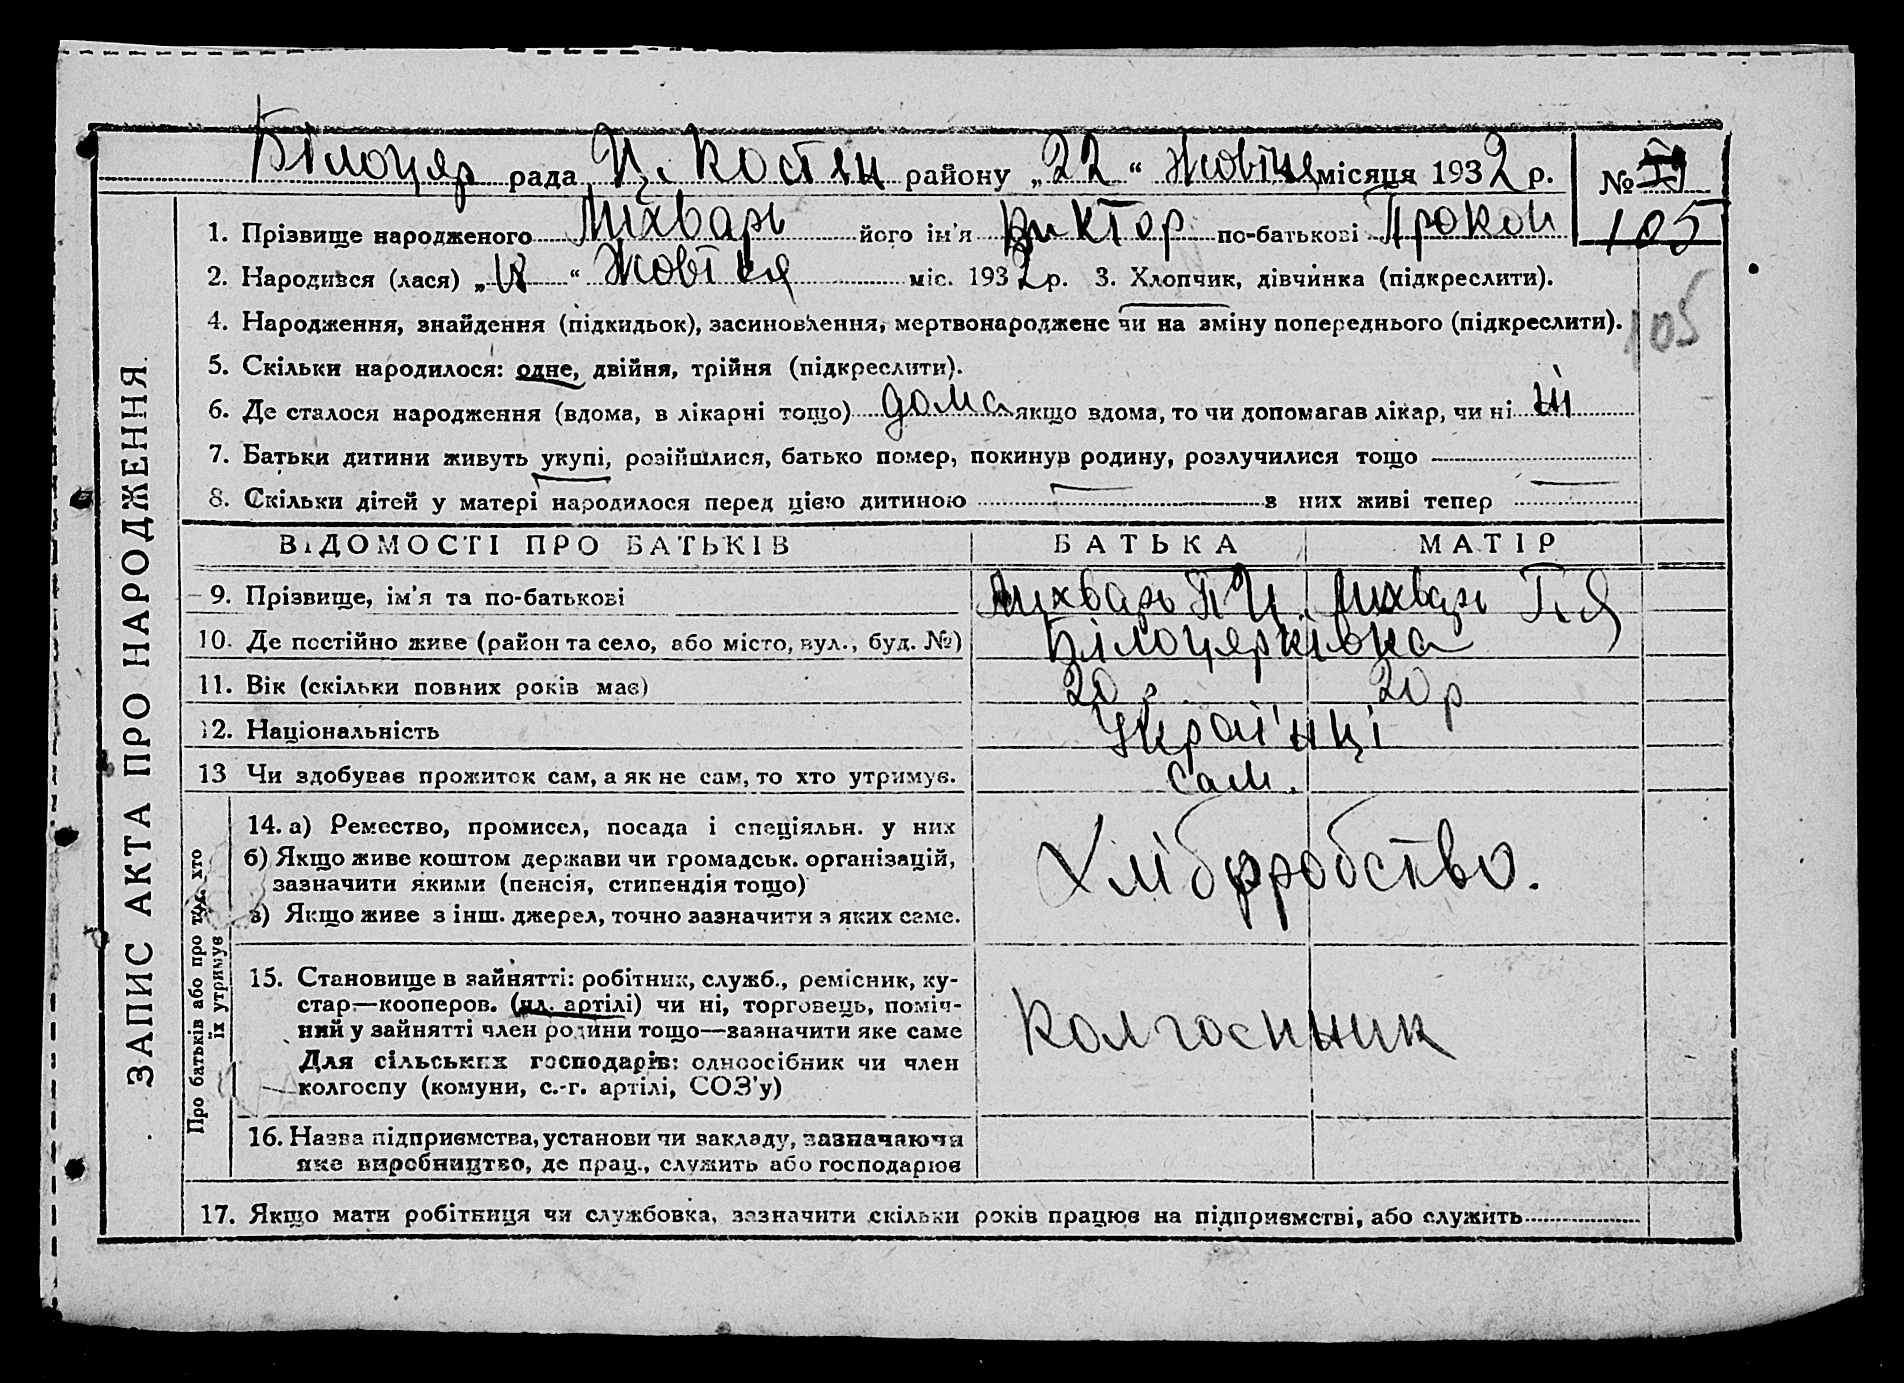 Білоцер рада Ц. Костян району „22“ Жовтня місяця 1932 р. №
105
1. Прізвище народженого Лихварь його ім'я Виктор по-батькові Прокоп
2. Народився (лася) „ “ Жовтня міс. 1932 р. 3. Хлопчик, дівчинка (підкреслити).
4. Народження, знайдення (підкидьок), засиновлення, мертвонароджене чи на зміну попереднього (підкреслити).
105
5. Скільки народилося: одне, двійня, трійня (підкреслити).
6. Де сталося народження (вдома, в лікарні тощо) дома якщо вдома, то чи допомагав лікар, чи ні ні
7. Батьки дитини живуть укупі, розійшлися, батько помер, покинув родину, розлучилися тощо
8. Скільки дітей у матері народилося перед цією дитиною — з них живі тепер —
ЗАПИС АКТА ПРО НАРОДЖЕННЯ.
ВІДОМОСТІ ПРО БАТЬКІВ БАТЬКА МАТІР
9. Прізвище, ім'я та по-батькові Лихварь П Ц. Лихварь П. Я
10. Де постійно живе (район та село, або місто, вул., буд. №) Білоцерківка
11. Вік (скільки повних років має) 20 р 20 р
12. Національність Украї'нці
13 Чи здобуває прожиток сам, а як не сам, то хто утримує. сам.
Про батьків або про тих, хто
їх утримує
14. а) Ремество, промисел, посада і спеціяльн. у них
б) Якщо живе коштом держави чи громадськ. організацій,
зазначити якими (пенсія, стипендія тощо)
в) Якщо живе з інш. джерел, точно зазначити з яких саме.
Хліборобство.
15. Становище в зайнятті: робітник, служб., ремісник, ку-
стар—кооперов. (чл. артілі) чи ні, торговець, поміч-
ний у зайнятті член родини тощо—зазначити яке саме
Для сільських господарів: одноосібник чи член
колгоспу (комуни, с.-г. артілі, СОЗ'у)
Колгоспник
16. Назва підприємства, установи чи закладу, зазначаючи
яке виробництво, де прац., служить або господарює
17. Якщо мати робітниця чи службовка, зазначити скільки років працює на підприємстві, або служить